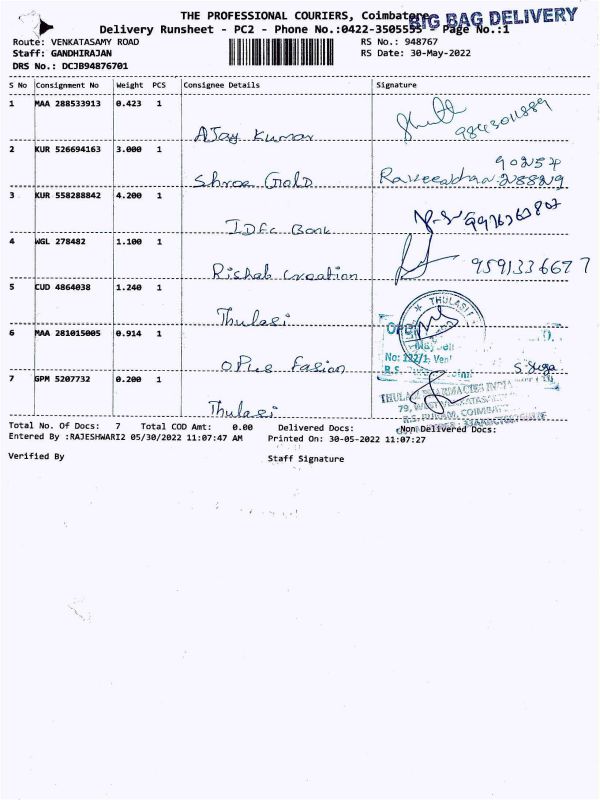 THE PROFESSIONAL COURIERS, Coimbatore
BIG BAG DELIVERY
Delivery Runsheet - PC2 - Phone No.:0422-3505555 Page No.:1
Route: VENKATASAMY ROAD RS No.: 948767
Staff: GANDHIRAJAN RS Date: 30-May-2022
DRS No.: DCJB94876701
S No Consignment No Weight PCS Consignee Details Signature
1 MAA 288533913 0.423 1
Ajay Kumar 9843011889
2 KUR 526694163 3.000 1
Shree Gold
3 KUR 558288842 4.200 1
IDFC Bank
4 WGL 278482 1.100 1
Rishab Creation
5 CUD 4864038 1.240 1
Thulasi
6 MAA 281015005 0.914 1
OPlus Fasion
7 GPM 5207732 0.200 1
Thulasi
Total No. Of Docs: 7 Total COD Amt: 0.00 Delivered Docs: Non Delivered Docs:
Entered By :RAJESHWARI2 05/30/2022 11:07:47 AM Printed On: 30-05-2022 11:07:27
Verified By Staff Signature